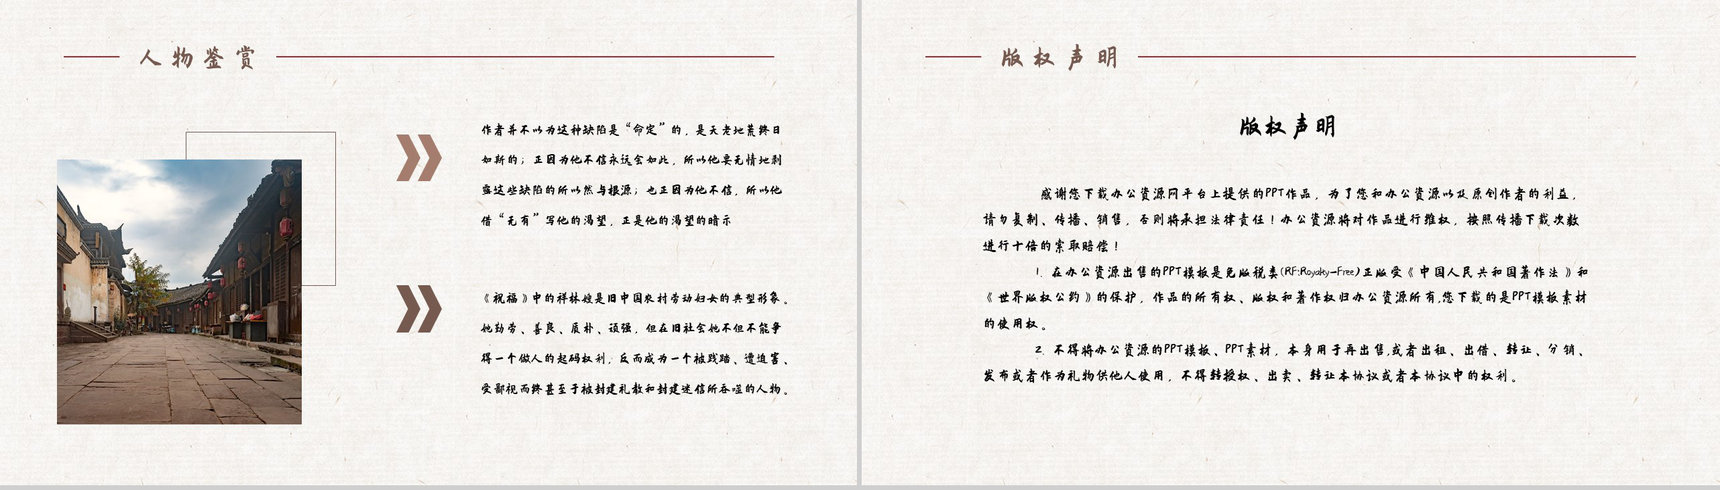 人物鉴赏
作者并不以为这种缺陷是“命定”的，是天老地荒终日
如斯的；正因为他不信永远会如此，所以他要无情地剥
露这些缺陷的所以然与根源；也正因为他不信，所以他
借“无有”写他的渴望，正是他的渴望的暗示
《祝福》中的祥林嫂是旧中国农村劳动妇女的典型形象。
她勤劳、善良、质朴、顽强，但在旧社会她不但不能争
得一个做人的起码权利，反而成为一个被践踏、遭迫害、
受鄙视而终甚至于被封建礼教和封建迷信所吞噬的人物。
版权声明
版权声明
感谢您下载办公资源网平台上提供的PPT作品，为了您和办公资源以及原创作者的利益，
请勿复制、传播、销售，否则将承担法律责任！办公资源将对作品进行维权，按照传播下载次数
进行十倍的索取赔偿！
1. 在办公资源出售的PPT模板是免版税类(RF:Royalty-Free)正版受《中国人民共和国著作法》和
《世界版权公约》的保护，作品的所有权、版权和著作权归办公资源所有,您下载的是PPT模板素材
的使用权。
2. 不得将办公资源的PPT模板、PPT素材，本身用于再出售,或者出租、出借、转让、分销、
发布或者作为礼物供他人使用，不得转授权、出卖、转让本协议或者本协议中的权利。